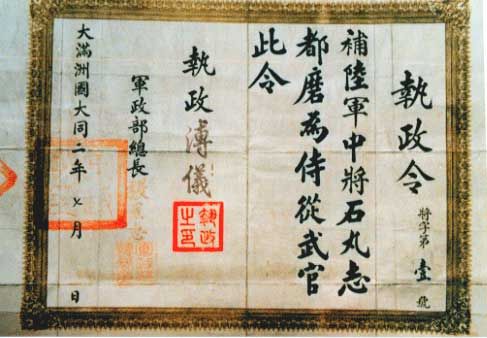 執政令
特字第壹號
補陸軍中將石丸志
都磨為侍從武官
此令
執政溥儀
執政之印
軍政部總長
大滿洲國大同二年七月 日